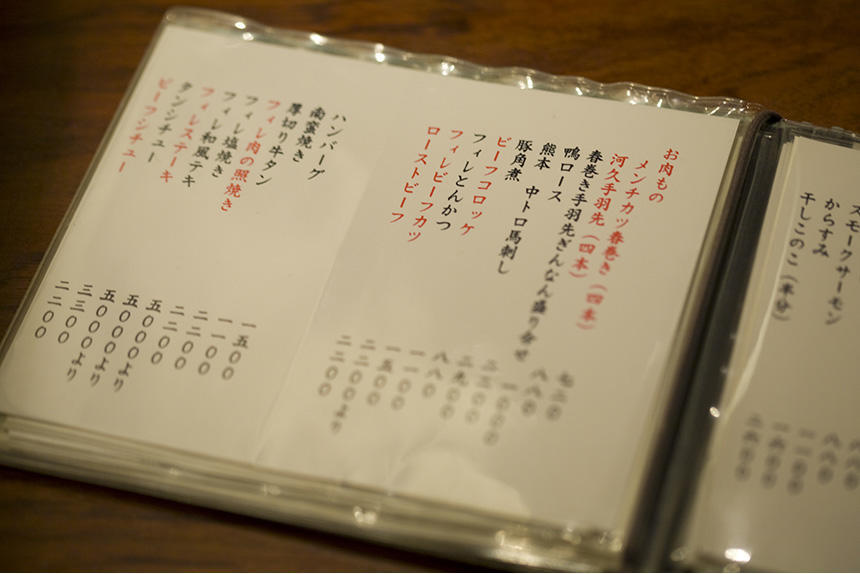 スモークサーモン
からすみ
干しこのこ（半分）
お肉もの
メンチカツ春巻き（四本）
河久手羽先（四本）
春巻き手羽先ぎんなん盛り合せ
鴨ロース
熊本 中トロ馬刺し
豚角煮
ビーフコロッケ
フィレとんかつ
フィレビーフカツ
ローストビーフ
七二〇
八八〇
八八〇
一一〇〇
一五〇〇
二二〇〇より
ハンバーグ
南蛮焼き
厚切り牛タン
フィレ肉の照焼き
フィレ塩焼き
フィレ和風テキ
フィレステーキ
タンシチュー
ビーフシチュー
一五〇〇
一一〇〇
二二〇〇
二二〇〇
五〇〇〇
五〇〇〇より
五〇〇〇より
三三〇〇より
二二〇〇